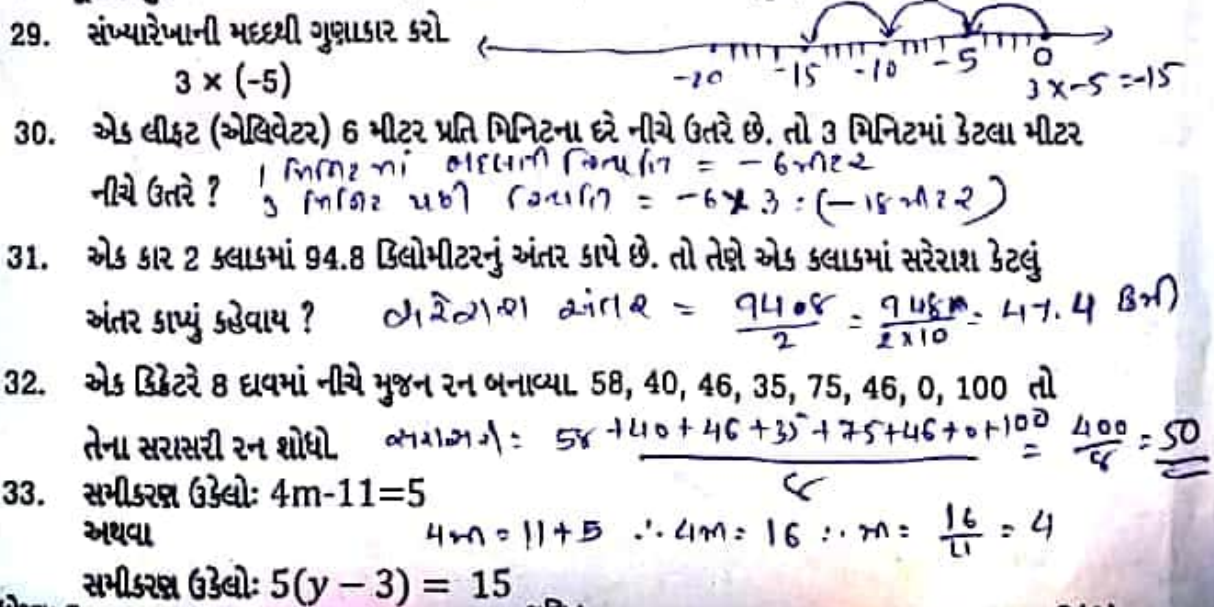 29. સંખ્યારેખાની મદદથી ગુણાકાર કરો
-20 -15 -10 -5 0
3 × (-5)
3 x -5 = -15
30. એક લીફ્ટ (એલિવેટર) 6 મીટર પ્રતિ મિનિટના દરે નીચે ઉતરે છે. તો 3 મિનિટમાં કેટલા મીટર
1 મિનિટ માં = -6 મીટર
નીચે ઉતરે ? 3 મિનિટ પછી = -6 x 3 = (-18 મીટર)
31. એક કાર 2 કલાકમાં 94.8 કિલોમીટરનું અંતર કાપે છે. તો તેણે એક કલાકમાં સરેરાશ કેટલું
અંતર કાપ્યું કહેવાય ? સરેરાશ અંતર = 94.8/2 = 948/2x10 = 47.4 કિમી
32. એક ક્રિકેટરે 8 દાવમાં નીચે મુજન રન બનાવ્યા. 58, 40, 46, 35, 75, 46, 0, 100 તો
તેના સરાસરી રન શોધો. = 58+40+46+35+75+46+0+100/8 = 400/8 = 50
33. સમીકરણ ઉકેલોઃ 4m-11=5
અથવા 4m = 11+5 ∴ 4m = 16 ∴ m = 16/4 = 4
સમીકરણ ઉકેલોઃ 5(y – 3) = 15